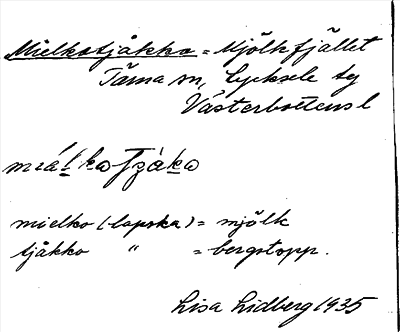 Mielkotjåkko = Mjölkfjället
Tärna sn, Lycksele tg
Västerbottensl
mielko (lapska) = mjölk
tjåkko " = bergstopp.
Lisa Lidberg 1935